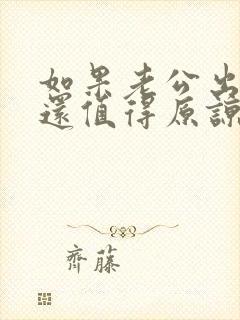 如果老公出
還值得原諒
齊藤